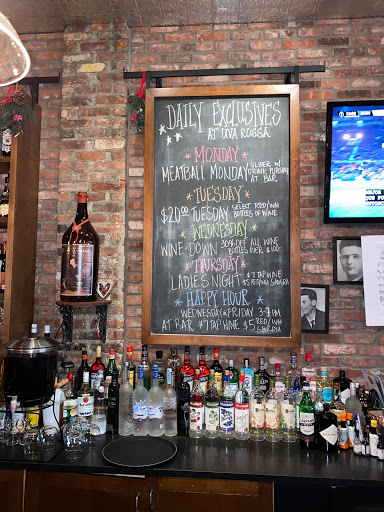 DAILY EXCLUSIVES
AT UVA ROSSA
MONDAY
MEATBALL MONDAY
SLIDER W/
DRINK PURCHASE
AT BAR
TUESDAY
$20.00 TUESDAY
SELECT RED/WH
BOTTLES OF WINE
WEDNESDAY
WINE-DOWN
30% OFF ALL WINE
BOTTLES OVER $100
THURSDAY
LADIES NIGHT
$7 TAP WINE
$5 RED/WH SANGRIA
HAPPY HOUR
WEDNESDAY & FRIDAY 3-7 PM
AT BAR $7 TAP WINE $5 RED/WH
SANGRIA